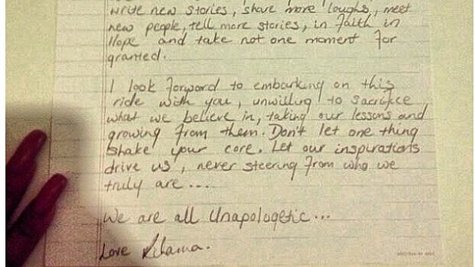 Write new stories, share more laughs, meet
new people, tell more stories, in faith in
Hope and take not one moment for
granted.
I look forward to embarking on this
ride with you, unwilling to sacrifice
what we believe in, taking our lessons and
growing from them. Don't let one thing
shake your core. Let our inspirations
drive us, never steering from who we
truly are...
We are all Unapologetic...
Love Rihanna.